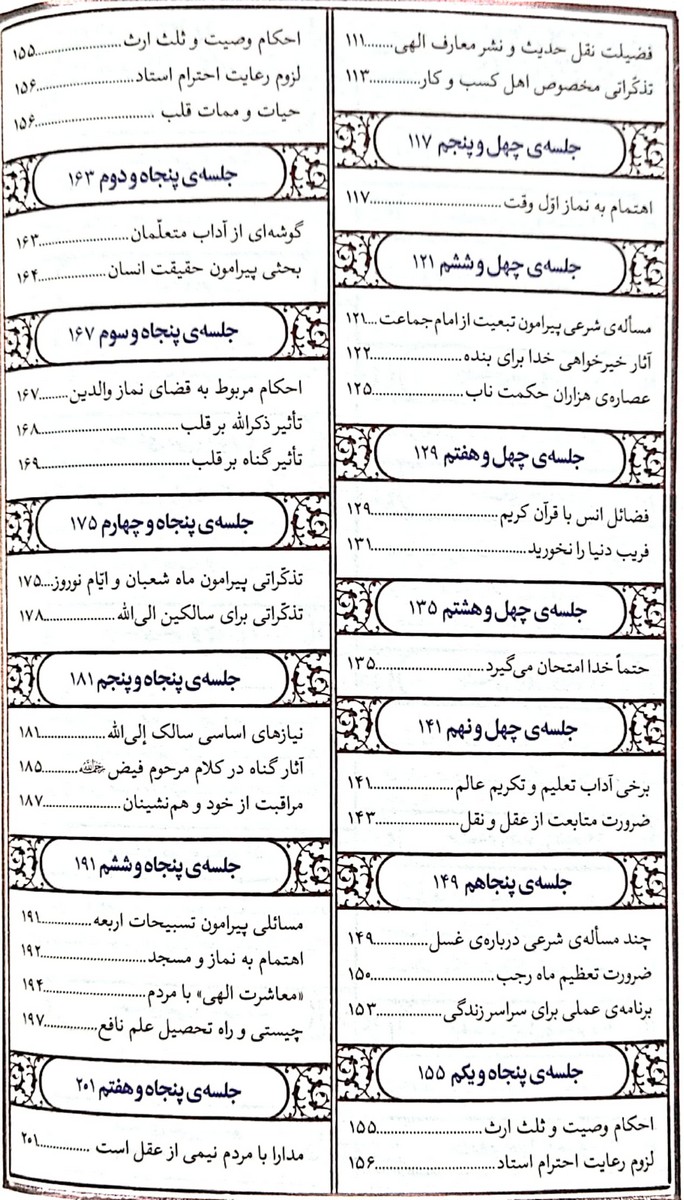 فضیلت نقل حدیث و نشر معارف الهی........۱۱۱
تذکّراتی مخصوص اهل کسب و کار............۱۱۳
جلسه‌ی چهل و پنجم ۱۱۷
اهتمام به نماز اوّل وقت................................۱۱۷
جلسه‌ی چهل و ششم ۱۲۱
مسأله‌ی شرعی پیرامون تبعیت از امام جماعت...۱۲۱
آثار خیرخواهی خدا برای بنده......................۱۲۲
عصاره‌ی هزاران حکمت ناب.......................۱۲۵
جلسه‌ی چهل و هفتم ۱۲۹
فضائل انس با قرآن کریم............................۱۲۹
فریب دنیا را نخورید...................................۱۳۱
جلسه‌ی چهل و هشتم ۱۳۵
حتماً خدا امتحان می‌گیرد..........................۱۳۵
جلسه‌ی چهل و نهم ۱۴۱
برخی آداب تعلیم و تکریم عالم....................۱۴۱
ضرورت متابعت از عقل و نقل....................۱۴۳
جلسه‌ی پنجاهم ۱۴۹
چند مسأله‌ی شرعی درباره‌ی غسل.............۱۴۹
ضرورت تعظیم ماه رجب...........................۱۵۰
برنامه‌ی عملی برای سراسر زندگی................۱۵۳
جلسه‌ی پنجاه و یکم ۱۵۵
احکام وصیت و ثلث ارث..........................۱۵۵
لزوم رعایت احترام استاد...........................۱۵۶
احکام وصیت و ثلث ارث..........................۱۵۵
لزوم رعایت احترام استاد...........................۱۵۶
حیات و ممات قلب ..............................۱۵۶
جلسه‌ی پنجاه و دوم ۱۶۳
گوشه‌ای از آداب متعلّمان..........................۱۶۳
بحثی پیرامون حقیقت انسان.....................۱۶۴
جلسه‌ی پنجاه و سوم ۱۶۷
احکام مربوط به قضای نماز والدین........۱۶۷
تأثیر ذکرالله بر قلب..................................۱۶۸
تأثیر گناه بر قلب.....................................۱۶۹
جلسه‌ی پنجاه و چهارم ۱۷۵
تذکّراتی پیرامون ماه شعبان و ایّام نوروز....۱۷۵
تذکّراتی برای سالکین الی‌الله....................۱۷۸
جلسه‌ی پنجاه و پنجم ۱۸۱
نیازهای اساسی سالک إلی‌الله...................۱۸۱
آثار گناه در کلام مرحوم فیض رحمه‌الله..........۱۸۵
مراقبت از خود و هم‌نشینان......................۱۸۷
جلسه‌ی پنجاه و ششم ۱۹۱
مسائلی پیرامون تسبیحات اربعه................۱۹۱
اهتمام به نماز و مسجد............................۱۹۲
«معاشرت الهی» با مردم..........................۱۹۴
چیستی و راه تحصیل علم نافع.................۱۹۷
جلسه‌ی پنجاه و هفتم ۲۰۱
مدارا با مردم نیمی از عقل است ...............۲۰۱